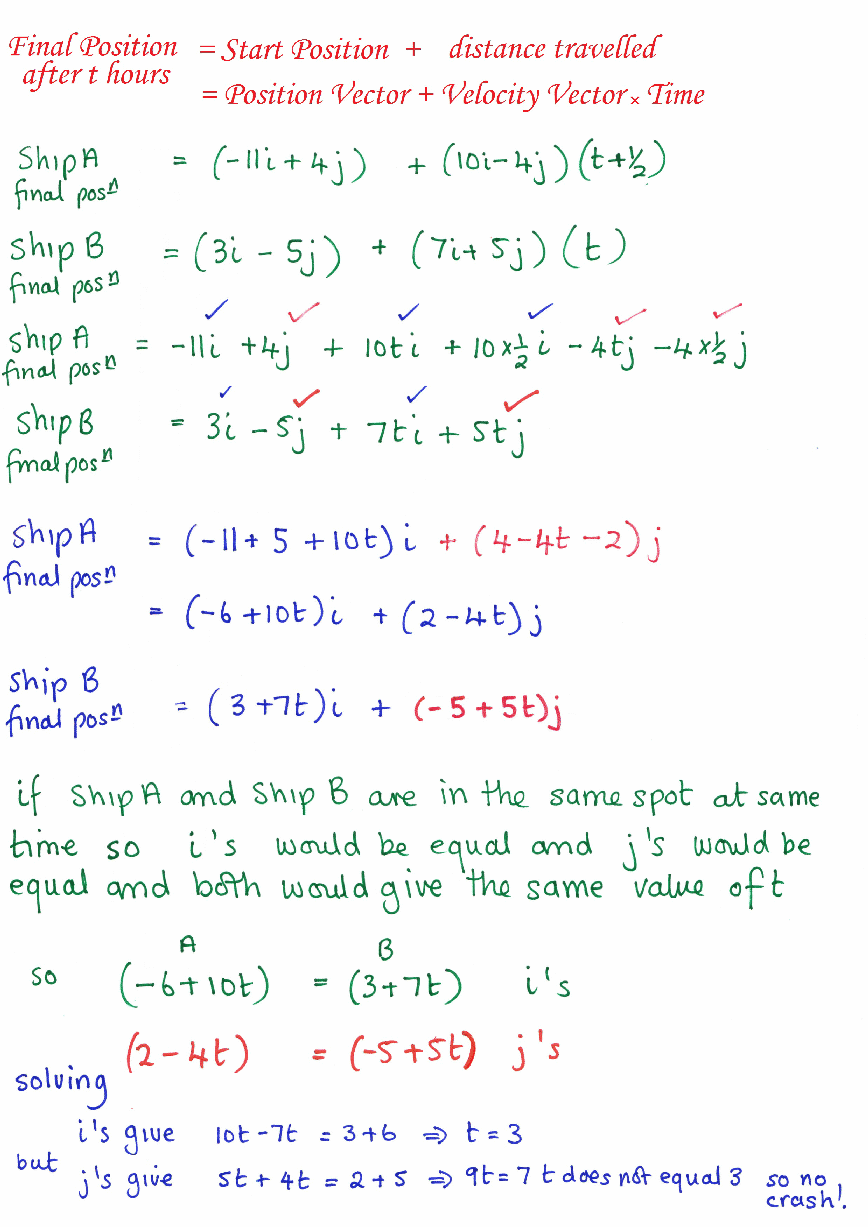 Final Position = Start Position + distance travelled
after t hours
= Position Vector + Velocity Vector × Time
Ship A = (-11i + 4j) + (10i - 4j)(t + ½)
final posⁿ
Ship B = (3i - 5j) + (7i + 5j)(t)
final posⁿ
✓ ✓ ✓ ✓ ✓ ✓
Ship A = -11i + 4j + 10ti + 10 × ½ i - 4tj - 4 × ½ j
final posⁿ
✓ ✓ ✓ ✓
Ship B = 3i - 5j + 7ti + 5tj
final posⁿ
Ship A = (-11 + 5 + 10t)i + (4 - 4t - 2)j
final posⁿ
= (-6 + 10t)i + (2 - 4t)j
Ship B
final posⁿ = (3 + 7t)i + (-5 + 5t)j
if Ship A and Ship B are in the same spot at same
time so i's would be equal and j's would be
equal and both would give the same value of t
A B
so (-6 + 10t) = (3 + 7t) i's
(2 - 4t) = (-5 + 5t) j's
solving
i's give 10t - 7t = 3 + 6 ⇒ t = 3
but j's give 5t + 4t = 2 + 5 ⇒ 9t = 7 t does not equal 3 so no
crash!.